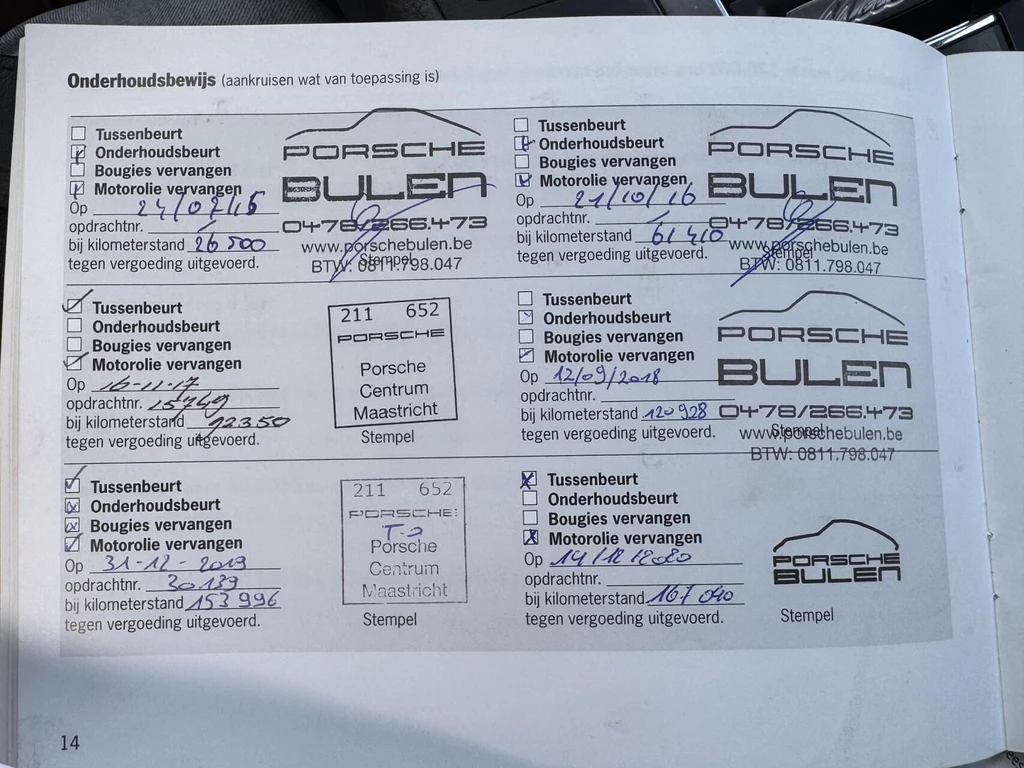 Onderhoudsbewijs (aankruisen wat van toepassing is)
Tussenbeurt
Onderhoudsbeurt
Bougies vervangen
Motorolie vervangen
Op 24/07/15
opdrachtnr. /
bij kilometerstand 26 500
tegen vergoeding uitgevoerd.
PORSCHE
BULEN
0478/266.473
www.porschebulen.be
Stempel
BTW: 0811.798.047
Tussenbeurt
Onderhoudsbeurt
Bougies vervangen
Motorolie vervangen
Op 21/10/16
opdrachtnr. /
bij kilometerstand 61 410
tegen vergoeding uitgevoerd.
PORSCHE
BULEN
0478/266.473
www.porschebulen.be
Stempel
BTW: 0811.798.047
Tussenbeurt
Onderhoudsbeurt
Bougies vervangen
Motorolie vervangen
Op 16-11-17
opdrachtnr. 15749
bij kilometerstand 92350
tegen vergoeding uitgevoerd.
211 652
PORSCHE
Porsche
Centrum
Maastricht
Stempel
Tussenbeurt
Onderhoudsbeurt
Bougies vervangen
Motorolie vervangen
Op 12/09/2018
opdrachtnr.
bij kilometerstand 120 928
tegen vergoeding uitgevoerd.
PORSCHE
BULEN
0478/266.473
www.porschebulen.be
Stempel
BTW: 0811.798.047
Tussenbeurt
Onderhoudsbeurt
Bougies vervangen
Motorolie vervangen
Op 31-12-2019
opdrachtnr. 30139
bij kilometerstand 153 996
tegen vergoeding uitgevoerd.
211 652
PORSCHE
Porsche
Centrum
Maastricht
Stempel
Tussenbeurt
Onderhoudsbeurt
Bougies vervangen
Motorolie vervangen
Op 14/12/2020
opdrachtnr.
bij kilometerstand 167 040
tegen vergoeding uitgevoerd.
PORSCHE
BULEN
Stempel
14